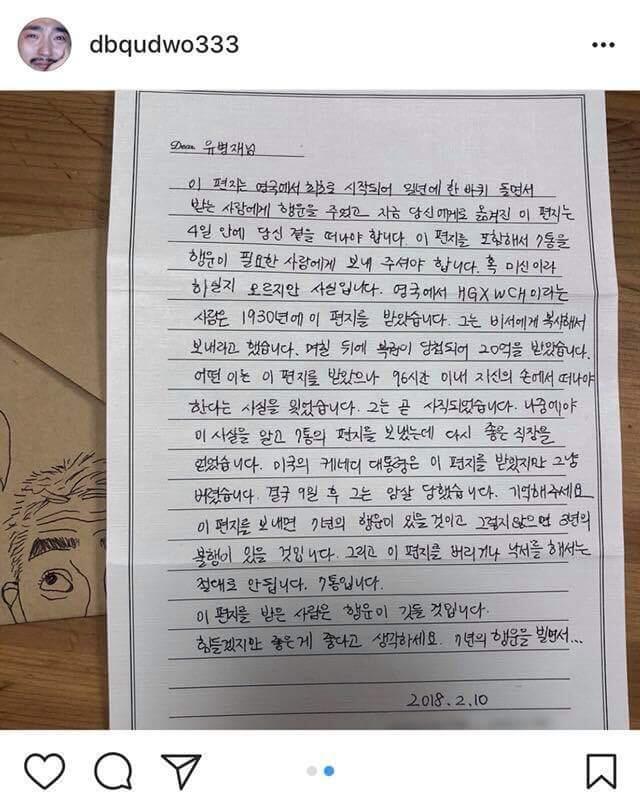 dbqudwo333
Dear. 유병재님
이 편지는 영국에서 최초로 시작되어 일년에 한 바퀴 돌면서
받는 사람에게 행운을 주었고 지금 당신에게로 옮겨진 이 편지는
4일 안에 당신 곁을 떠나야 합니다. 이 편지를 포함해서 7통을
행운이 필요한 사람에게 보내 주셔야 합니다. 혹 미신이라
하실지 모르지만 사실입니다. 영국에서 HGXWCH이라는
사람은 1930년에 이 편지를 받았습니다. 그는 비서에게 복사해서
보내라고 했습니다. 며칠 뒤에 복권이 당첨되어 20억을 받았습니다.
어떤 이는 이 편지를 받았으나 96시간 이내 자신의 손에서 떠나야
한다는 사실을 잊었습니다. 그는 곧 사직되었습니다. 나중에야
이 사실을 알고 7통의 편지를 보냈는데 다시 좋은 직장을
얻었습니다. 미국의 케네디 대통령은 이 편지를 받았지만 그냥
버렸습니다. 결국 9일 후 그는 암살 당했습니다. 기억해주세요
이 편지를 보내면 7년의 행운이 있을 것이고 그렇지 않으면 3년의
불행이 있을 것입니다. 그리고 이 편지를 버리거나 낙서를 해서는
절대로 안됩니다. 7통입니다.
이 편지를 받은 사람은 행운이 깃들 것입니다.
힘들겠지만 좋은게 좋다고 생각하세요. 7년의 행운을 빌면서...
2018.2.10